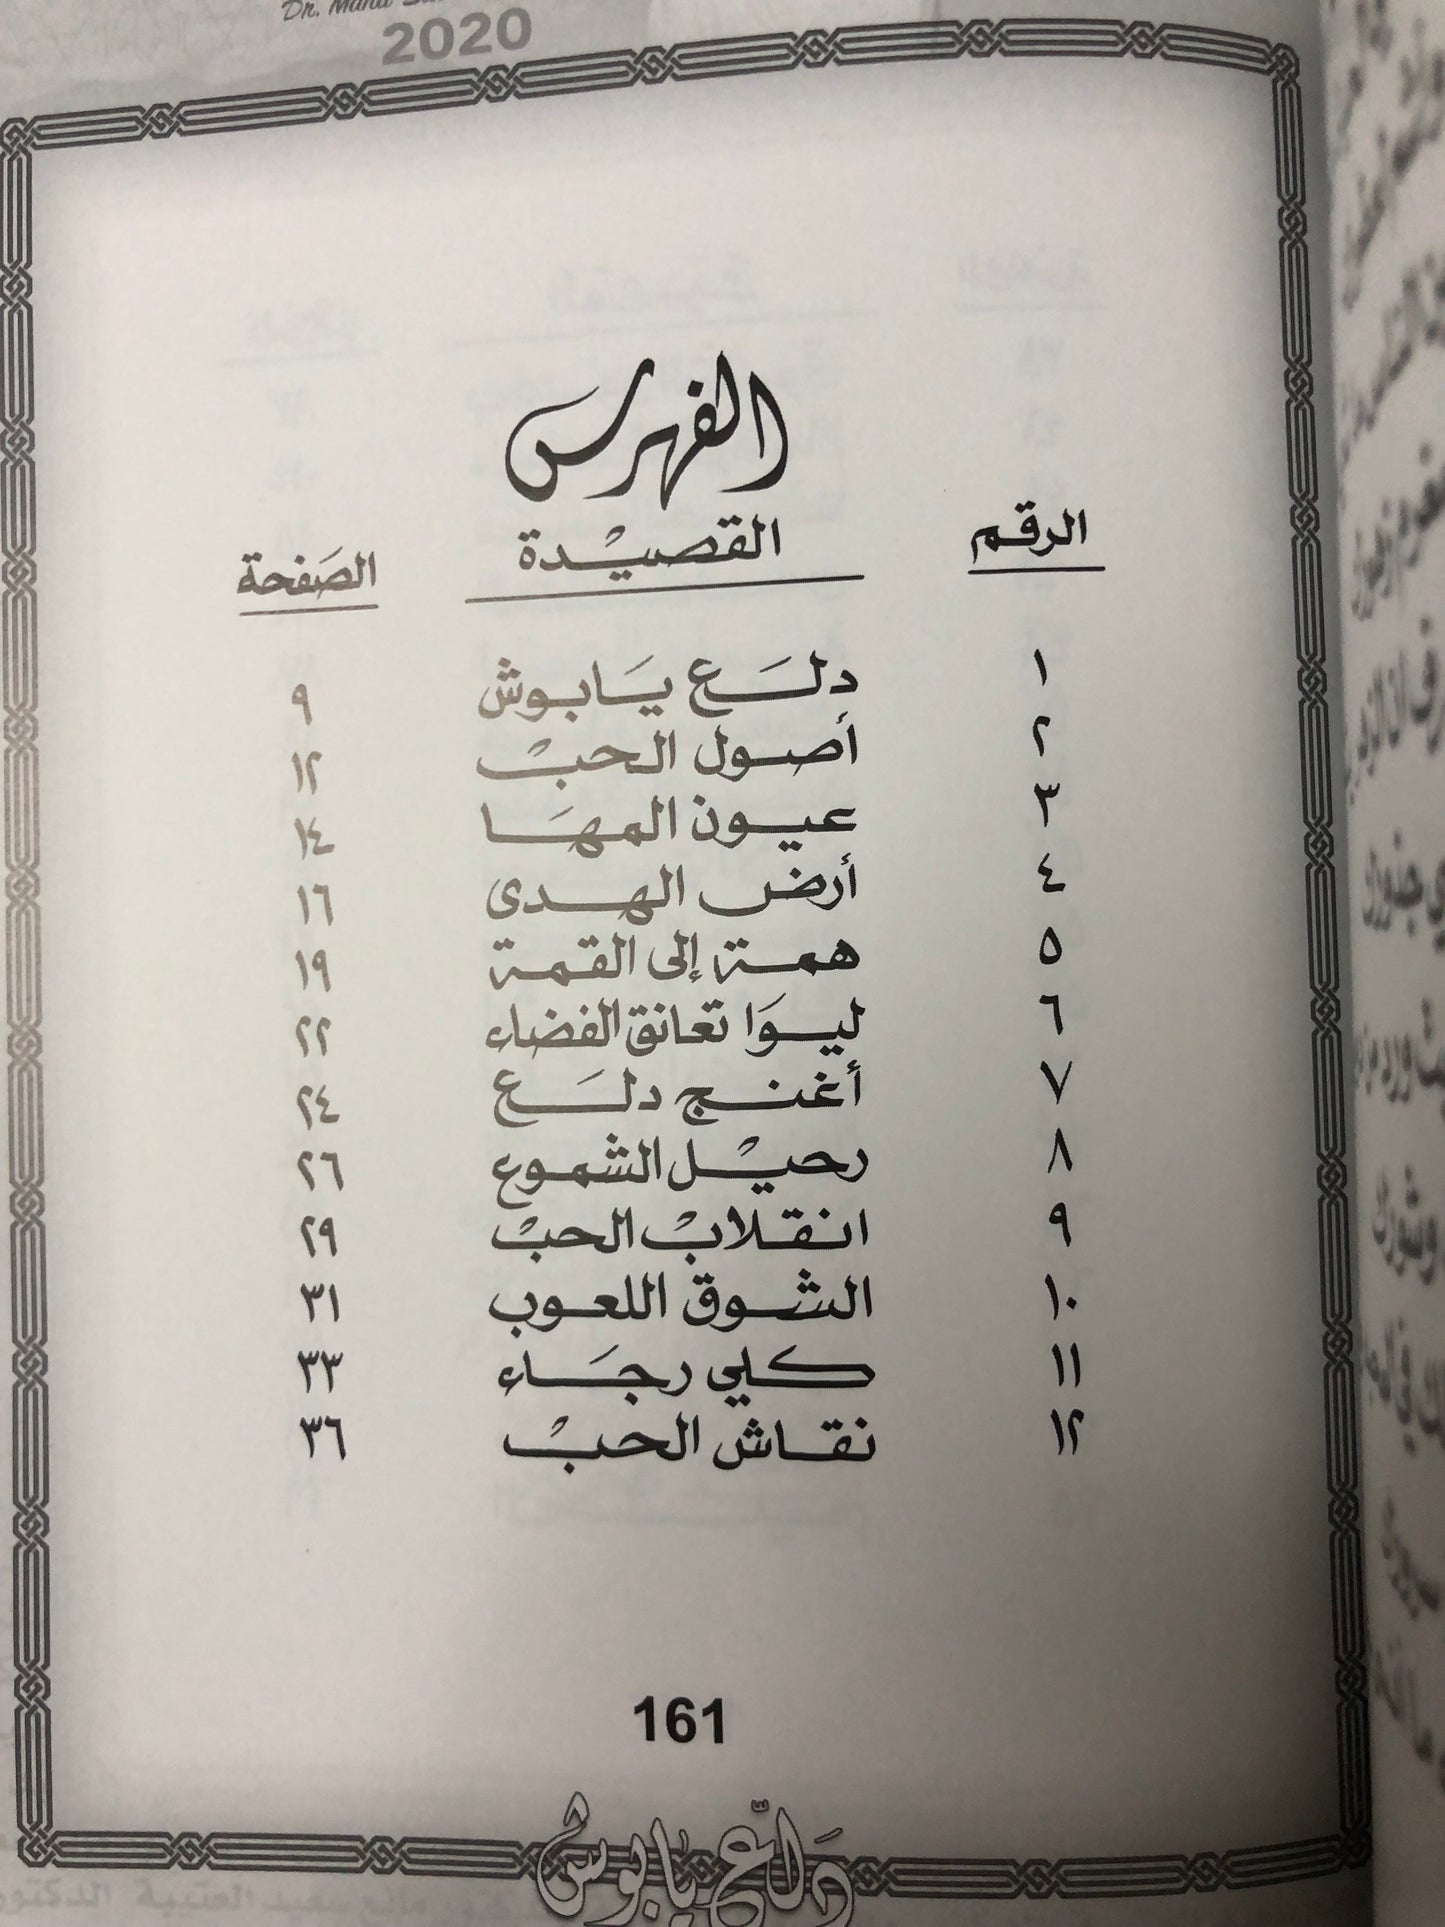 2020
الفهرس
الرقم القصيدة الصفحة
١ دلَع يَابوش ٩
٢ أصول الحب ١٢
٣ عيون المهَا ١٤
٤ أرض الهدى ١٦
٥ همة إلى القمة ١٩
٦ ليوَا تعانق الفضاء ٢٢
٧ أغنج دلَع ٢٤
٨ رحيل الشموع ٢٦
٩ انقلاب الحب ٢٩
١٠ الشوق اللعوب ٣١
١١ كلي رجَاء ٣٣
١٢ نقاش الحب ٣٦
161
دَلّع يابوش